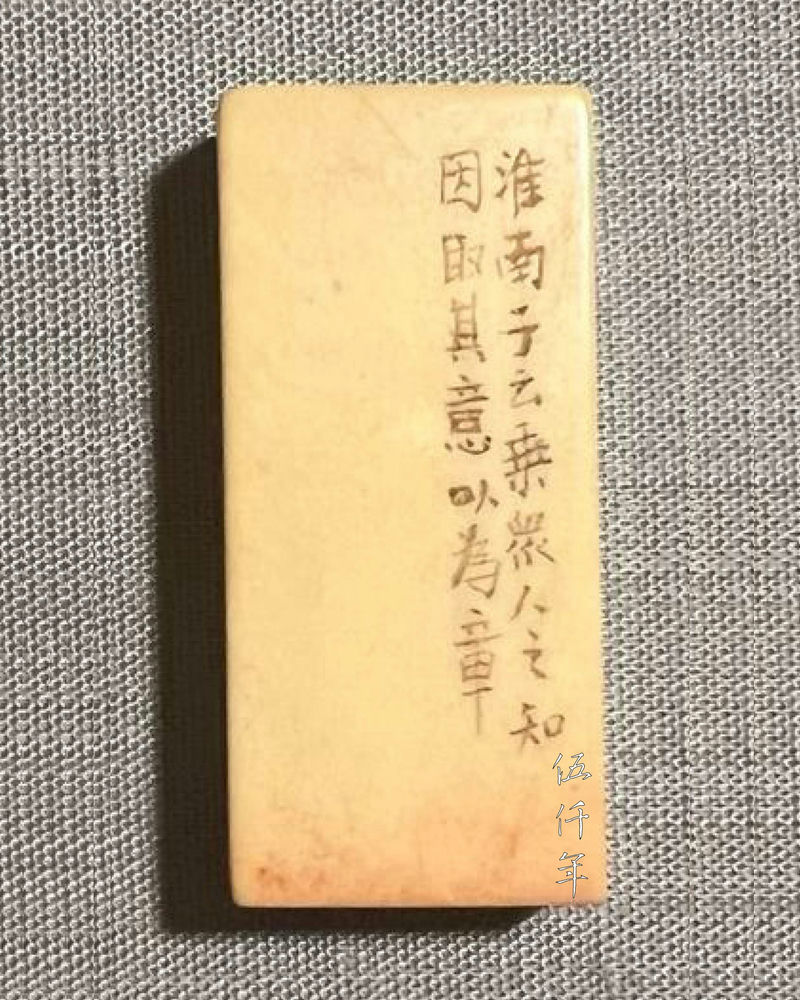 淮南子云乗眾人之知
因取其意以為章
伍仟年